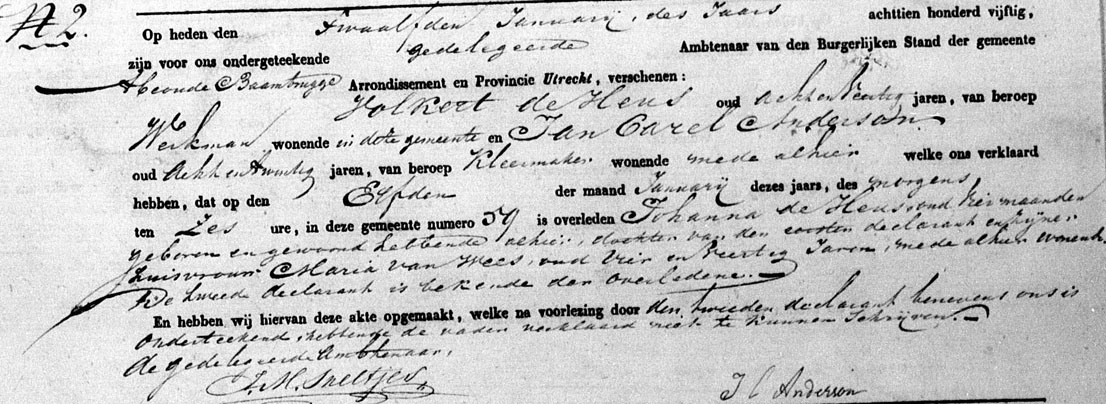 N 2. Op heden den Twaalfden Januarij, des Jaars achttien honderd vijftig,
zijn voor ons ondergeteekende gedelegeerde Ambtenaar van den Burgerlijken Stand der gemeente
Abcoude Baambrugge Arrondissement en Provincie Utrecht, verschenen:
Volkert de Heus oud Acht en Veertig jaren, van beroep
Werkman wonende in deze gemeente en Jan Carel Anderson
oud Acht en Twintig jaren, van beroep Kleermaker wonende mede alhier welke ons verklaard
hebben, dat op den Elfden der maand Januarij dezes jaars, des morgens
ten Zes ure, in deze gemeente numero 59 is overleden Johanna de Heus, oud Vier maanden
geboren en gewoond hebbende alhier, dochter van den eersten declarant en zijne
huisvrouw Maria van Wees, oud Vier en Veertig Jaren, mede alhier wonende.
De tweede declarant is bekende der overledene.
En hebben wij hiervan deze akte opgemaakt, welke na voorlezing door den tweeden declarant benevens ons is
onderteekend, hebbende de vader verklaard niet te kunnen schrijven.
de gedelegeerde Ambtenaar,
J. M. Sneltjes J C Anderson